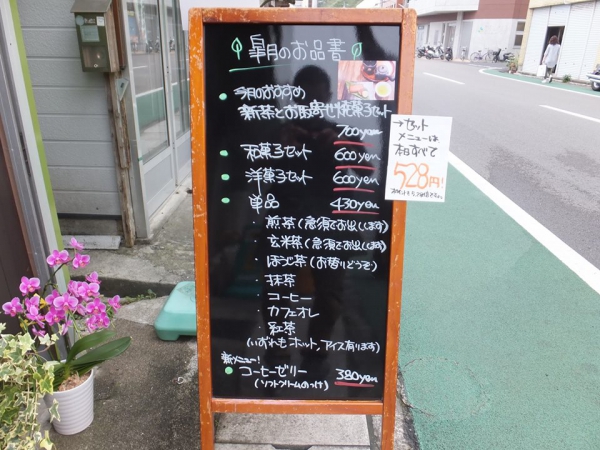 皐月のお品書
今月のおすすめ
新茶とお取寄せ焼菓子セット
700yen
和菓子セット 600yen
洋菓子セット 600yen
単品 430yen
・煎茶(急須でお出しします)
・玄米茶(急須でお出しします)
・ほうじ茶(お替りどうぞ)
・抹茶
・コーヒー
・カフェオレ
・紅茶
(いずれもホット,アイス有ります)
新メニュー!
コーヒーゼリー 380yen
(ソフトクリームのっけ)
→セット
メニューは
本日すべて
528円!